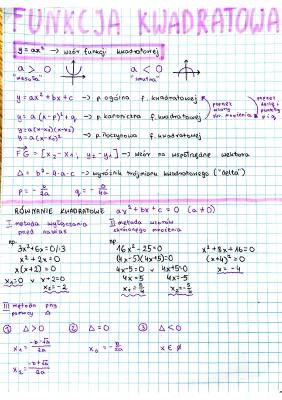 FUNKCJA KWADRATOWA
y = ax² → wzór funkcji kwadratowej
a > 0 a < 0
"wesoła" "smutna"
y = ax² + bx + c → p. ogólna f. kwadratowej
y = a(x-p)² + q → p. kanoniczna f. kwadratowej
y = a(x-x₁)(x-x₂)
y = a(x-x₀)² → p. iloczynowa f. kwadratowej
FG = [x₂-x₁, y₂-y₁] → wzór na współrzędne wektora
Δ = b² - 4·a·c → wyróżnik trójmianu kwadratowego ("delta")
p = -b/2a q = -Δ/4a
RÓWNANIE KWADRATOWE ax² + bx + c = 0 (a ≠ 0)
I metoda wyłączania przed nawias
np.
3x² + 6x = 0 /:3
x² + 2x = 0
x(x+2) = 0
x₁ = 0 v x+2 = 0
x₂ = -2
II metoda wzorów skróconego mnożenia
np.
16x² - 25 = 0
(4x-5)(4x+5) = 0
4x-5 = 0 v 4x+5 = 0
4x = 5 4x = -5
x₁ = 5/4 x₂ = -5/4
x² + 8x + 16 = 0
(x+4)² = 0
x = -4
III metoda przy pomocy Δ
① Δ > 0 ② Δ = 0 ③ Δ < 0
x₁ = -b-√Δ/2a x₀ = -b/2a x ∈ ø
x₂ = -b+√Δ/2a